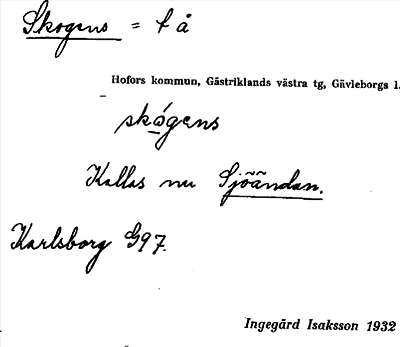 Skogens = f å
Hofors kommun, Gästriklands västra tg, Gävleborgs l.
skógens
Kallas nu Sjöändan.
Karlsborg G97.
Ingegärd Isaksson 1932